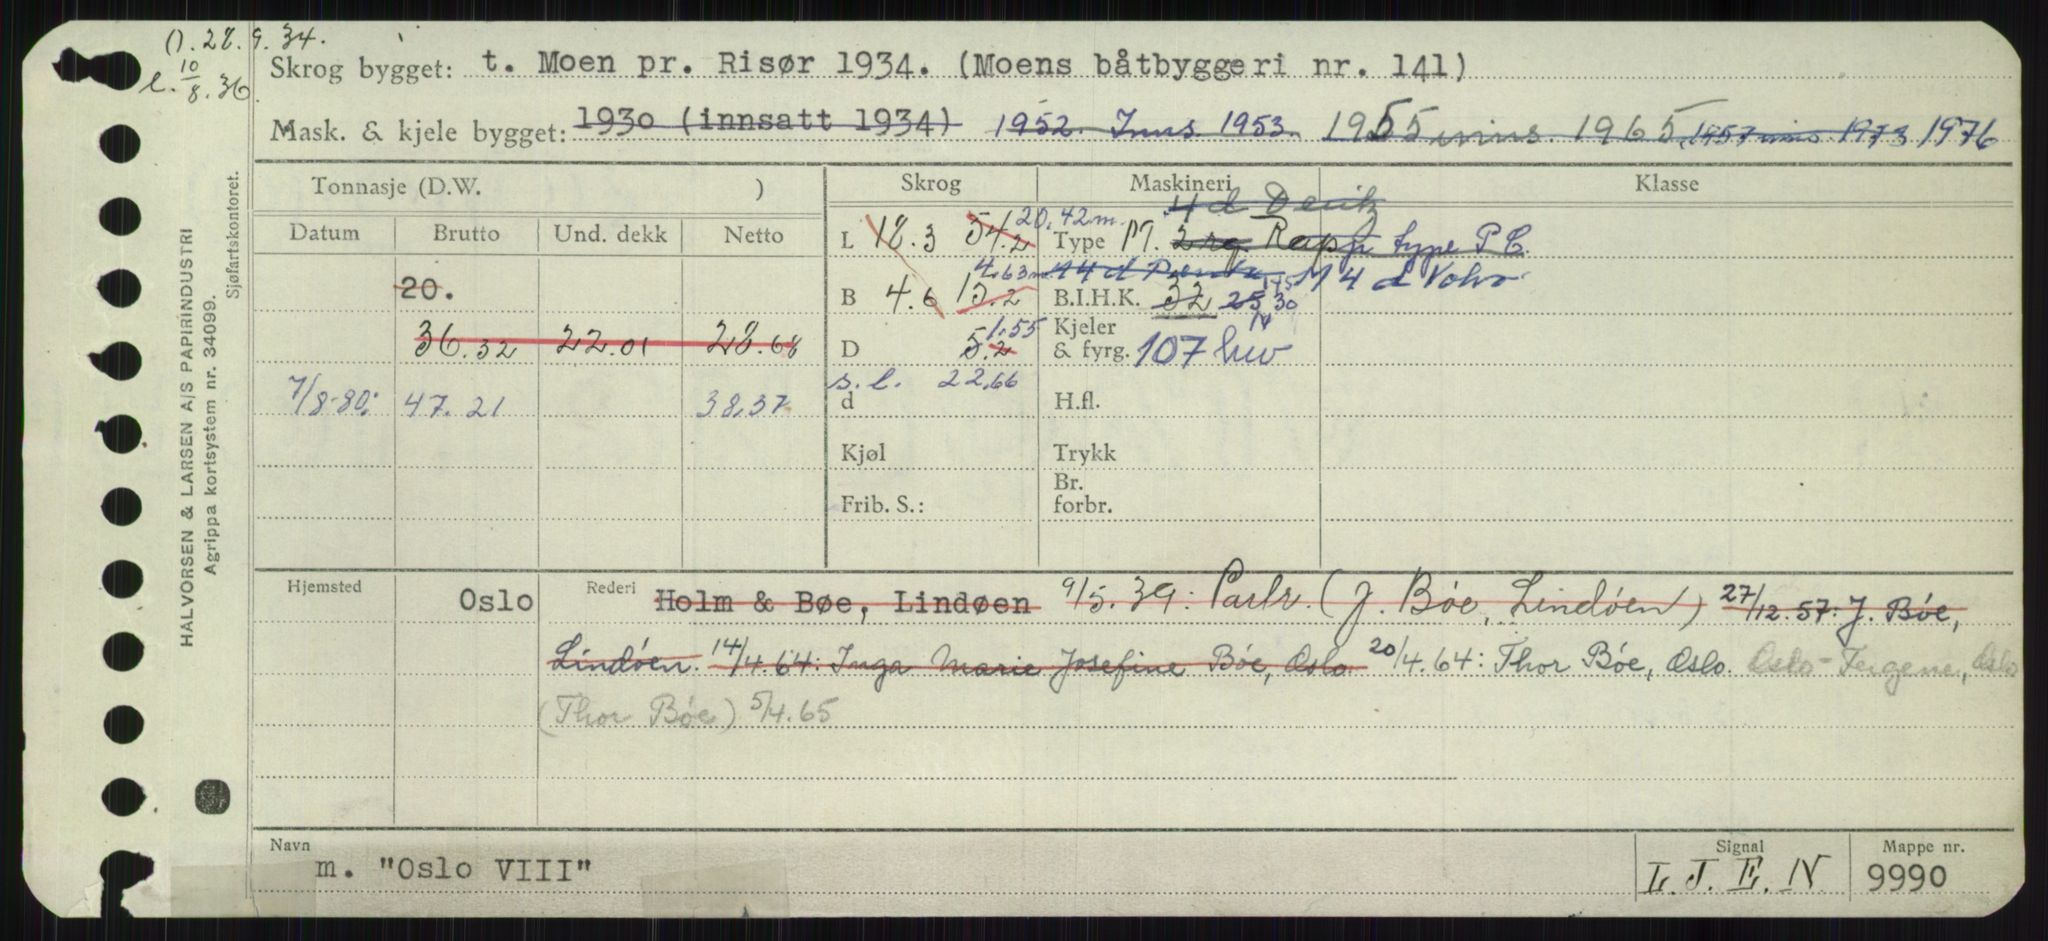 (). 28.9.34.
l. 10/8.36
Skrog bygget: t. Moen pr. Risør 1934. (Moens båtbyggeri nr. 141)
Mask. & kjele bygget: 1930 (innsatt 1934) 1952. Inns. 1953. 1955 inns. 1965, 1957 inns 1973 1976
Tonnasje (D.W. ) Skrog Maskineri Klasse
4 d Deutz
Datum Brutto Und. dekk Netto
L 18.3 54.2 20,42 m. Type M. 2 rg. Rapp type P C.
4.63 m 4 d Penta M 4 d Volvo
20. B 4.6 15.2 B.I.H.K. 32 25, 30
36.32 22.01 28.68 D 5.2 1.55 Kjeler & fyrg. 107 kw
s. l. 22,66
7/8-80: 47.21 38,37 d H.fl.
Kjøl Trykk
Frib. S.: Br. forbr.
Hjemsted Oslo Rederi Holm & Bøe, Lindøen 9/5.39: Partr. (J. Bøe, Lindøen) 27/12.57: J. Bøe,
Lindøen. 14/4.64: Inga Marie Josefine Bøe, Oslo. 20/4.64: Thor Bøe, Oslo. Oslo-Fergene, Oslo
(Thor Bøe) 5/4.65
Navn m. "Oslo VIII" Signal L. J. E. N Mappe nr. 9990
HALVORSEN & LARSEN A/S PAPIRINDUSTRI
Agrippa kortsystem nr. 34099.
Sjøfartskontoret.